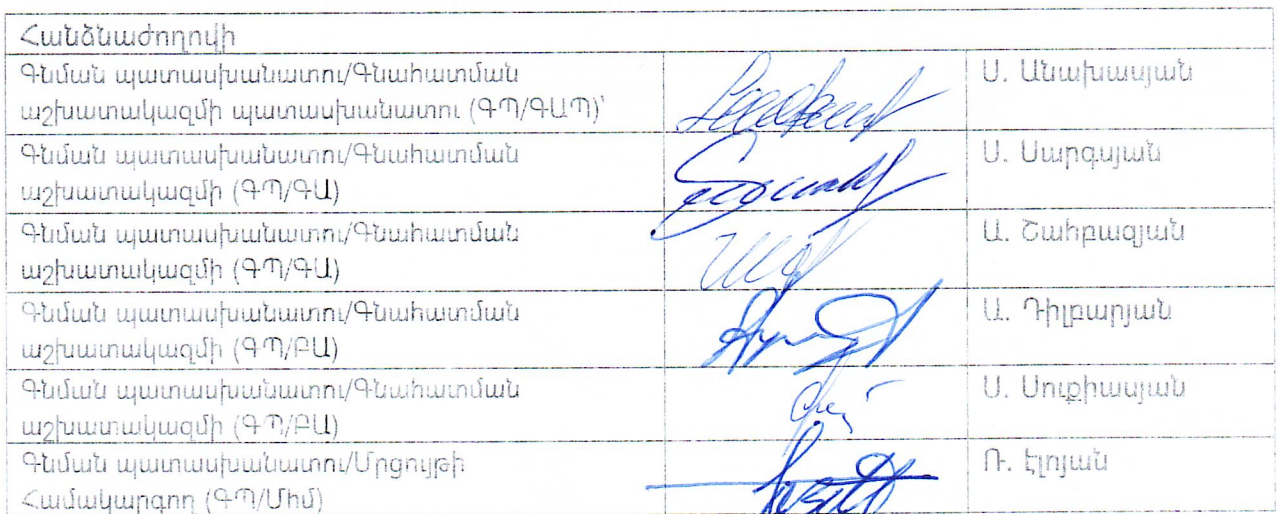 Հանձնաժողովի
Գնման պատասխանատու/Գնահատման
աշխատակազմի պատասխանատու (ԳՊ/ԳԱՊ)՝
Ս. Անախասյան
Գնման պատասխանատու/Գնահատման
աշխատակազմի (ԳՊ/ԳԱ)
Ս. Սարգսյան
Գնման պատասխանատու/Գնահատման
աշխատակազմի (ԳՊ/ԳԱ)
Ա. Շահբազյան
Գնման պատասխանատու/Գնահատման
աշխատակազմի (ԳՊ/ԲԱ)
Ա. Դիլբարյան
Գնման պատասխանատու/Գնահատման
աշխատակազմի (ԳՊ/ԲԱ)
Ս. Սուքիասյան
Գնման պատասխանատու/Մրցույթի
Համակարգող (ԳՊ/Միմ)
Ռ. Էլոյան